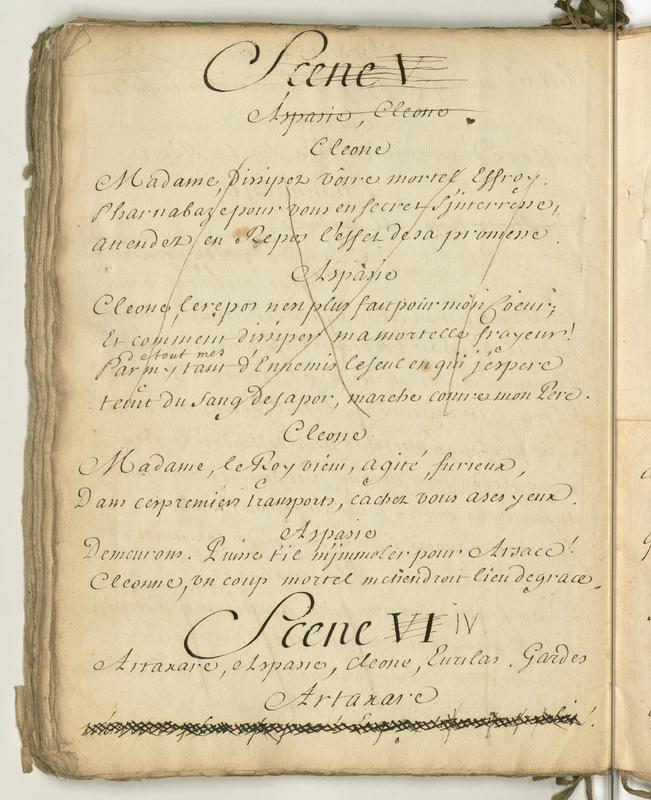 Scene V
Aspasie, Cleone.
Cleone
Madame, dissipez vôtre mortel Effroy.
Pharnabaze pour vous en secret s'interresse,
attendez en Repos l'effet de sa promesse.
Aspasie
Cleone, le repos n'est plus fait pour mon Coeur;
Et comment dissiper ma mortelle frayeur!
de tout mes
Parmy tant d'Ennemis le seul en qui j'espere
teint du sang de sapor, marche contre mon Pere.
Cleone
Madame, le Roy vient, agité, furieux,
Dans ces premiers transports, cachez vous a ses yeux.
Aspasie
Demeurons. Puisse t'il m'immoler pour Arsace!
Cleonne, un coup mortel me tiendroit lieu de grace.
Scene VI IV
Artaxare, Aspasie, Cleone, Eurilas. Gardes
Artaxare